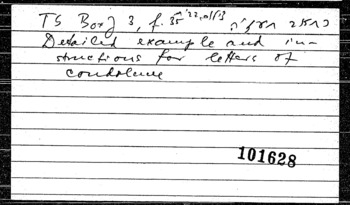 TS Box J 3, f. 35
Detailed example and in-
structions for letters of
condolence
101628